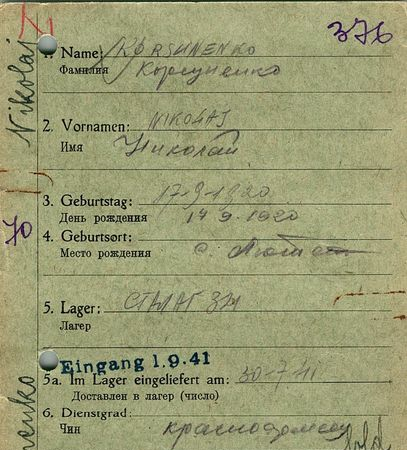 376
Nikolaj
1. Name: KORSUNENKO
Фамилия Корсуненко
2. Vornamen: NIKOLAJ
Имя Николай
3. Geburtstag: 17-9-1920
День рождения 17 9. 1920
70
4. Geburtsort:
Место рождения с
5. Lager: СТАЛАГ
Лагер
Eingang 1.9.41
5a. Im Lager eingeliefert am: 30-7-41
Доставлен в лагер (число)
6. Dienstgrad:
Чин красноармеец